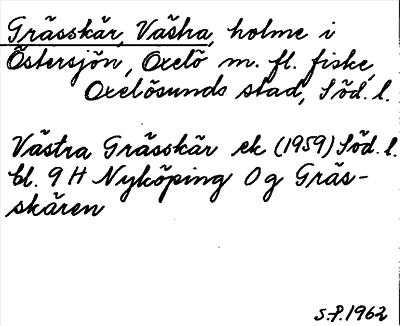 Grässkär, Västra, holme i
Östersjön, Oxelö m. fl. fiske,
Oxelösunds stad, Söd. l.
Västra Grässkär ek (1959) Söd. l.
bl. 9 H Nyköping 0 g Gräs-
skären
S.P. 1962